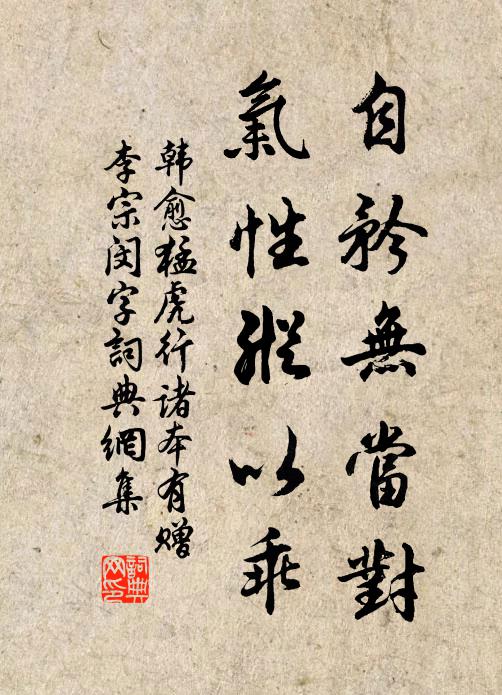 自矜無當對
氣性縱以乖
韩愈猛虎行诸本有赠
李宗闵字詞典網集
詞典网印